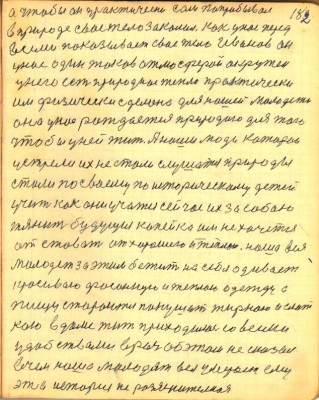 182
а чтобы он практически сам попробывал
в природе свое тело закалил. Как у нас перед
всеми показывает свое тело Иванов он
у нас один таков атмосферой окружен
у него есть природное тепло практически
им физически сделано для нашей молодежи
она у нас рождается природою для того
чтобы у ней жить. А наши люди которое
устрели их не стали слушать природы
стали по своему по историческому детей
учить как они учат сейчас их за собою
тянит будущая копейка им не хочется
отставать от хорошего и теплого. наша вся
молодежь за этим бежит на себя одивает
красивую фасонную и теплую одежду а
пищу стараются покушать жирную и слат
кую в доме жить приходится со всеми
удобствами враз об этом не сказал
в чем наша молодежь вся умирает ему
эта история не разъяснительная